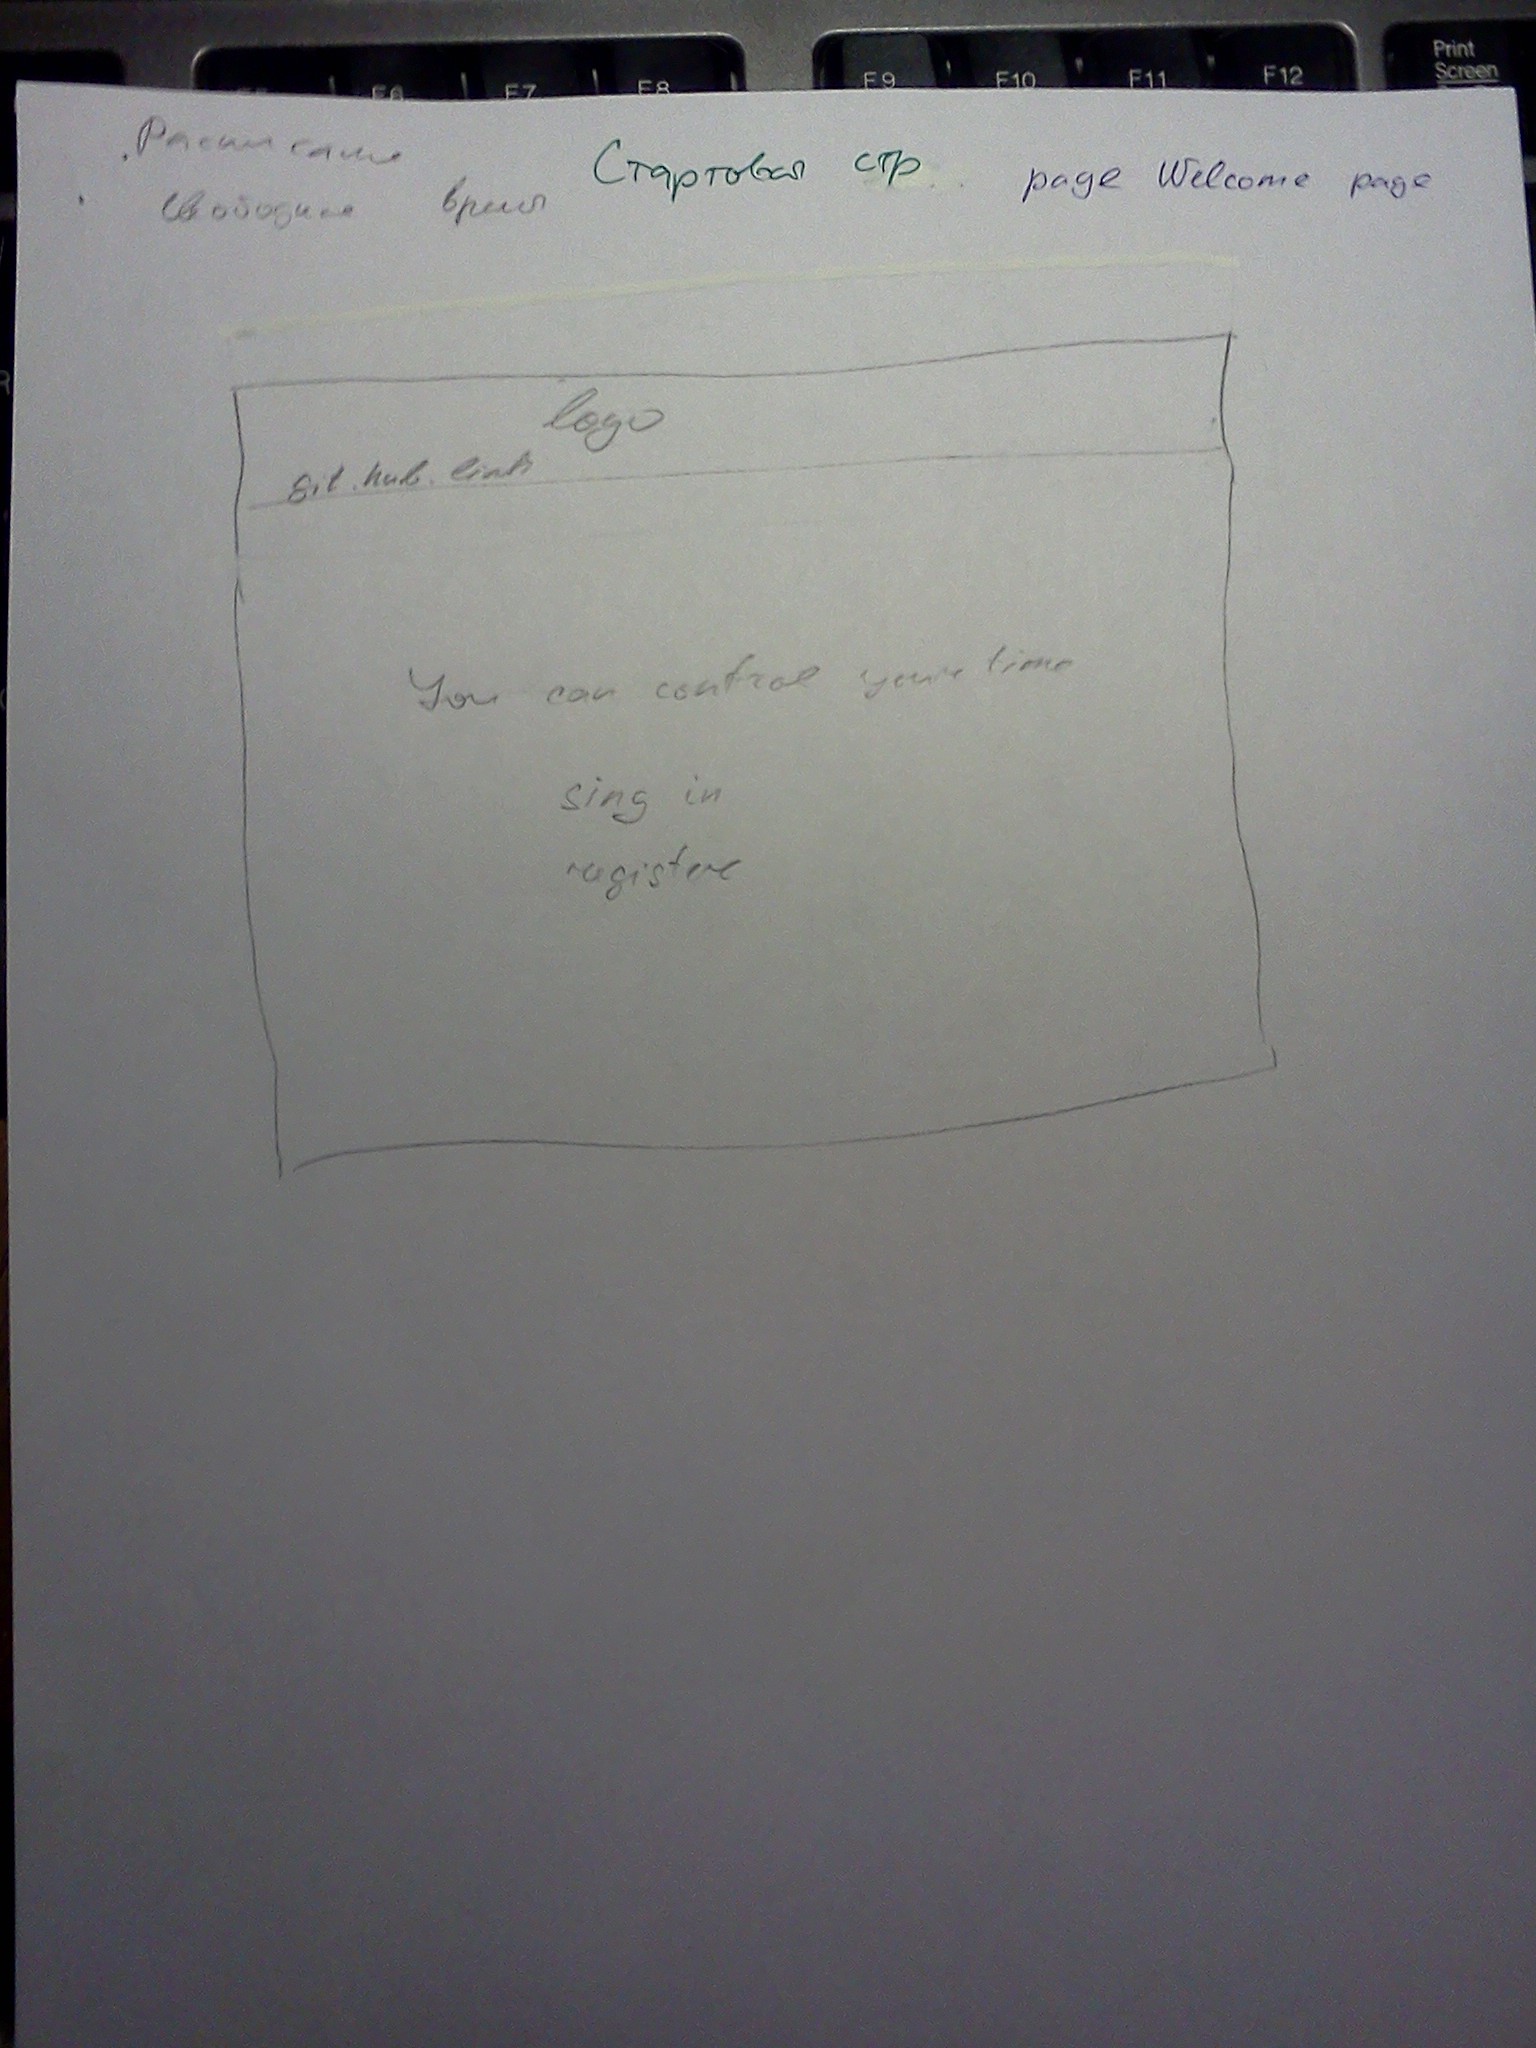 F6 F7 F8 F9 F10 F11 F12 Print
Screen
Расписание
Свободное время
Стартовая стр. page Welcome page
logo
git.hub.link
You can control your time
sing in
register